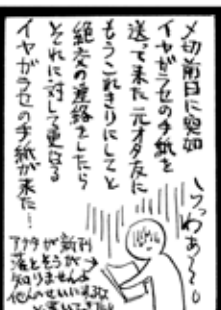 〆切前日に突如
イヤガラセの手紙を
送って来た元オタ友に
もうこれきりにしてと
絶交の連絡をしたら
それに対して更なる
イヤガラセの手紙が来た…!
うわぁ〜〜。
アナタが新刊
落とそうが
知りませんよ
他人のせいにするな